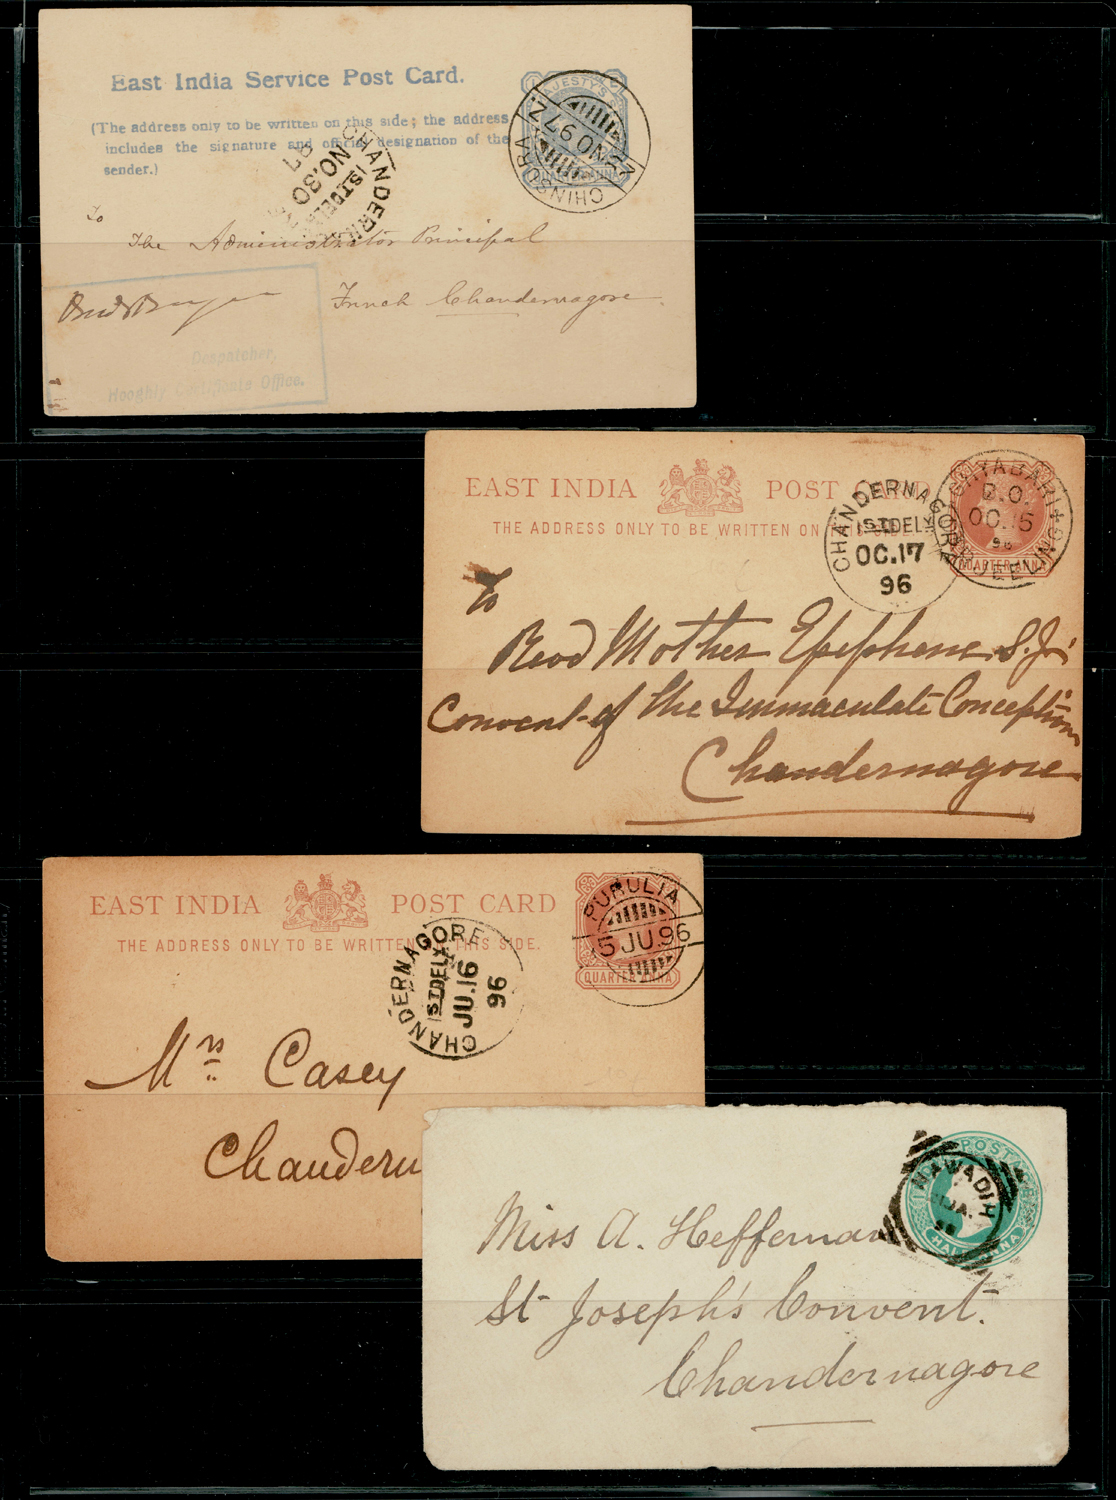 East India Service Post Card.
(The address only to be written on this side; the address
includes the signature and official designation of the
sender.)
MAJESTY'S
QUARTER ANNA
CHINSURA
NO 97
CHANDERN
1STDEL
NO.30
97
To
The Administrator Principal
French Chandernagore.
Despatcher,
Hooghly Certificate Office.
EAST INDIA POST CARD
THE ADDRESS ONLY TO BE WRITTEN ON THIS SIDE.
CHANDERNAGORE
1STDELY
OC.17
96
GHYABARI
D.O.
OC.15
96
DARJEELING
QUARTER ANNA
To
Revd Mother Epiphane S.J.
Convent of the Immaculate Conception
Chandernagore
EAST INDIA POST CARD
THE ADDRESS ONLY TO BE WRITTEN ON THIS SIDE.
PURULIA
15 JU.96
QUARTER ANNA
CHANDERNAGORE
1STDELY
JU.16
96
Mrs Casey
Chandern
POSTAGE
HALF ANNA
NAWADIH
JA.
Miss A. Heffernan
St Joseph's Convent.
Chandernagore